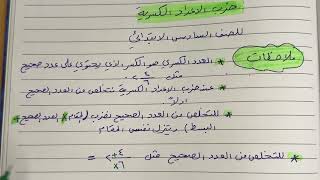 ضرب الاعداد الكسرية
للصف السادس الابتدائي
ملاحظات
* العدد الكسري هو الكسر الذي يحتوي على عدد صحيح
مثل
* عند ضرب الاعداد الكسرية نتخلص من العدد الصحيح
اولاً
* للتخلص من العدد الصحيح نضرب (المقام × العدد الصحيح +
البسط) وينزل نفس المقام
* للتخلص من العدد الصحيح مثل